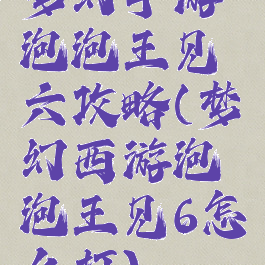 梦幻手游
泡泡王见
六攻略(梦
幻西游泡
泡王见6怎
么打)